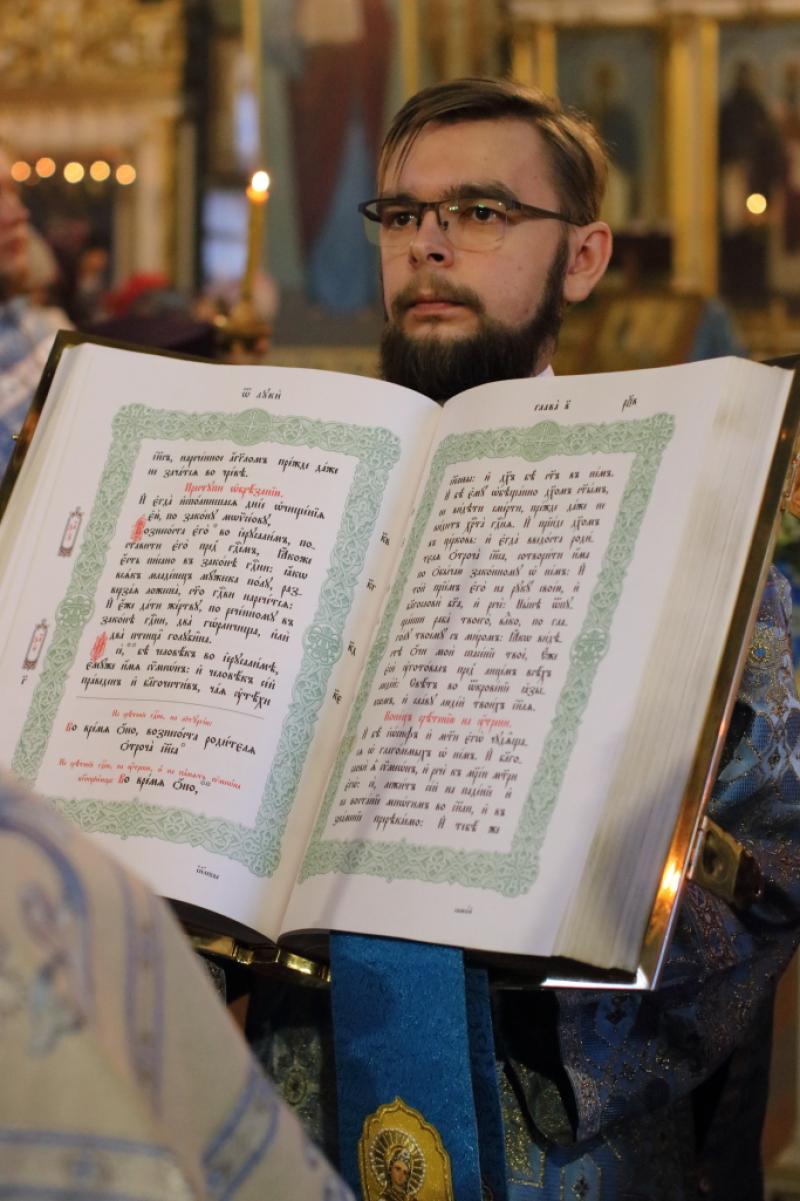 Ѿ лꙋкѝ
і҆и҃съ, нарече́нное а҆́гг҃ломъ пре́жде да́же
не зача́тсѧ во чре́вѣ.
Престꙋпѝ ѡ҆брѣ́занїи.
И҆ є҆гда̀ и҆спо́лнишасѧ дні́е ѡ҆чище́нїѧ
є҆ю̀, по зако́нꙋ мѡѷсе́овꙋ,
вознесо́ста є҆го̀ во і҆ерꙋсали́мъ, по-
ста́вити є҆го̀ пред̾ гдⷭ҇емъ, Ꙗ҆́коже
є҆́сть пи́сано въ зако́нѣ гдⷭ҇ни: ꙗ҆́кѡ
всѧ́къ младе́нецъ мꙋ́жеска по́лꙋ, раз-
верза́ѧ ложесна̀, ст҃о гдⷭ҇ви нарече́тсѧ:
И҆ є҆́же да́ти же́ртвꙋ, по рече́нномꙋ въ
зако́нѣ гдⷭ҇ни, два̀ гѡ́рличища, и҆лѝ
два̀ птенца̀ гѡлꙋби̑на.
И҆ сѐ, бѣ̀ человѣ́къ во і҆ерꙋсали́мѣ,
є҆мꙋ́же и҆́мѧ сѷмеѡ́нъ: и҆ человѣ́къ се́й
пра́веденъ и҆ бл҃гочести́въ, ча́ѧ ᲂу҆тѣ́хи
На срѣ́тенїе гдⷭ҇не, на лїтꙋргі́и:
Во вре́мѧ ѻ҆́но, вознесо́ста роди́телѧ
ѻ҆троча̀ і҆и҃са
На срѣ́тенїе гдⷭ҇не, на ᲂу҆́трени,
Во вре́мѧ ѻ҆́но,
і҆и҃левы
глава̀ в҃
і҆и҃левы: и҆ дх҃ъ бѣ̀ ст҃ъ въ не́мъ.
И҆ бѣ̀ є҆мꙋ̀ ѡ҆бѣща́нно дх҃омъ ст҃ы́мъ,
не ви́дѣти сме́рти, пре́жде да́же не
ви́дитъ хрⷭ҇та̀ гдⷭ҇нѧ. И҆ прїи́де дх҃омъ
въ це́рковь: и҆ є҆гда̀ введо́ста роди́-
телѧ ѻ҆троча̀ і҆и҃са, сотвори́ти и҆́ма
по ѡ҆бы́чаю зако́нномꙋ ѡ҆ не́мъ: И҆
то́й прїе́мъ є҆го̀ на рꙋкꙋ̀ своє́ю, и҆
бл҃гословѝ бг҃а, и҆ речѐ: Нн҃ѣ ѿпꙋ-
ща́еши раба̀ твоего̀, вл҃ко, по гла-
го́лꙋ твоемꙋ̀ съ ми́ромъ: Ꙗ҆́кѡ ви́дѣ-
стѣ ѻ҆́чи моѝ спасе́нїе твоѐ, Є҆́же
є҆сѝ ᲂу҆гото́валъ пред̾ лице́мъ всѣ́хъ
люді́й: Свѣ́тъ во ѿкрове́нїе ꙗ҆зы́-
кѡмъ, и҆ сла́вꙋ люді́й твои́хъ і҆и҃лѧ.
Коне́цъ срѣ́тенїю на ᲂу҆́трени.
И҆ бѣ̀ і҆ѡ́сифъ и҆ мт҃и є҆гѡ̀ чꙋдѧ̑ща-
сѧ ѡ҆ глаго́лемыхъ ѡ҆ не́мъ. И҆ бл҃го-
словѝ ѧ҆̀ сѷмеѡ́нъ, и҆ речѐ къ мр҃і́и мт҃ри
є҆гѡ̀: сѐ, лежи́тъ се́й на паде́нїе и҆
на воста́нїе мнѡ́гимъ во і҆и҃ли, и҆ въ
зна́менїе пререка́емо: И҆ тебѣ́ же